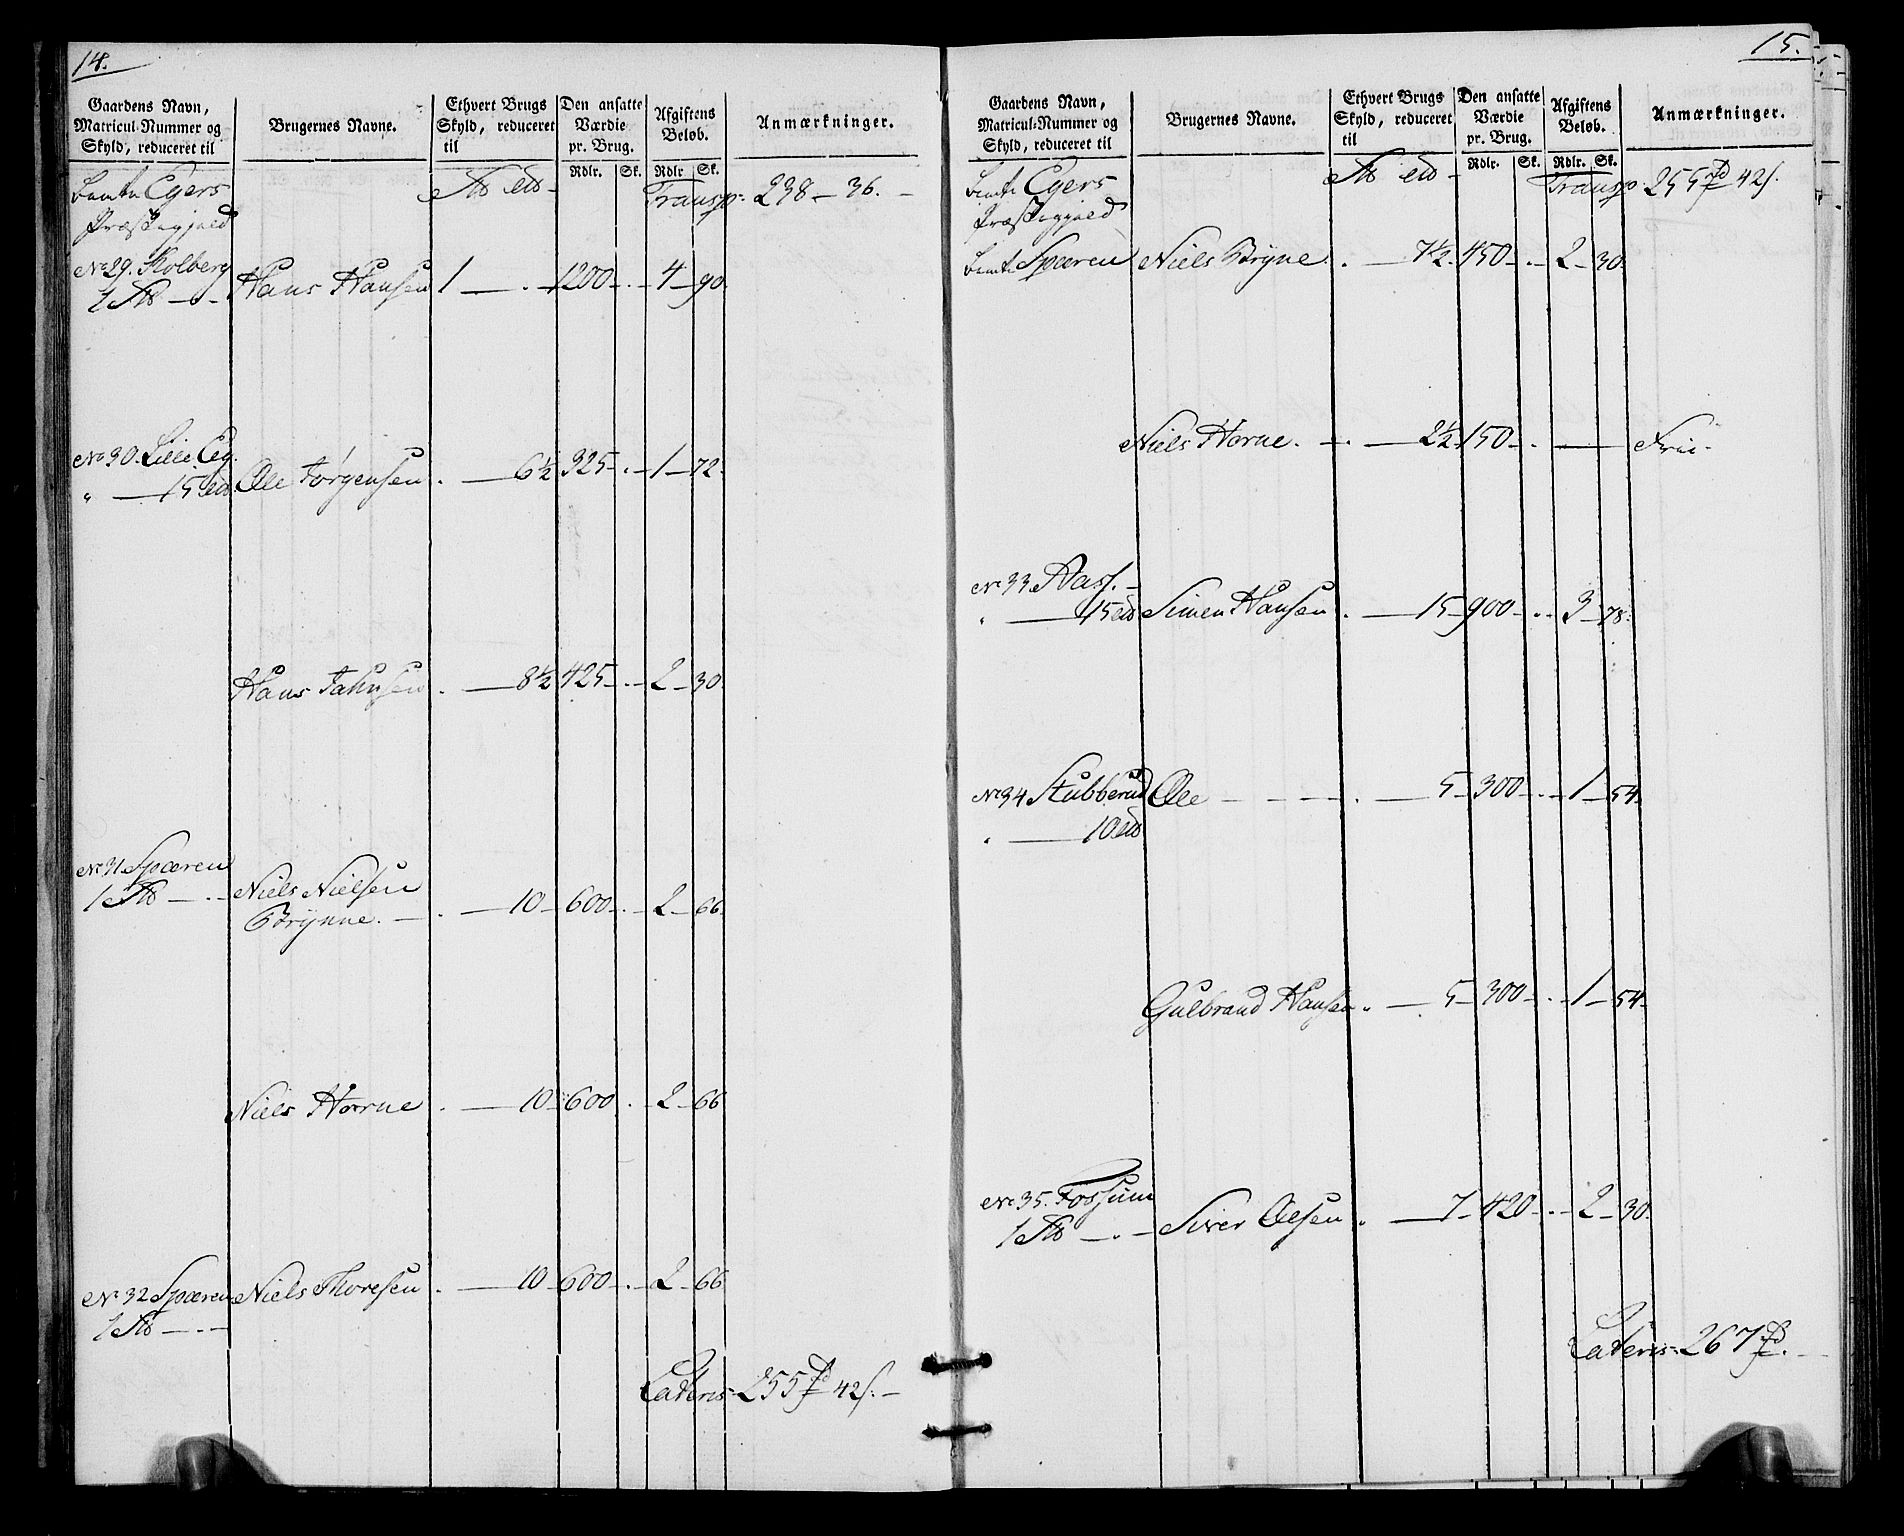 14.
Gaardens Navn,
Matricul-Nummer og
Skyld, reduceret til
Brugernes Navne.
Ethvert Brugs
Skyld, reduceret
til
Den ansatte
Værdie
pr. Brug.
Rdlr. Sk.
Afgiftens
Beløb.
Rdlr Sk.
Anmærkninger.
Egers
Præstegjeld
Transp: 238 - 36. -
No 29. Kolberg
Hans Hansen 1 - . - 1200 - . - 4 - 90.
No 30. Lille Eg.
" - 15 Ole Jørgensen . - 6½ 325 - . - 1 - 72.
Hans Jahnsen . - 8½ 425 - . - 2 - 30.
No 31 Spæren
Niels Nielsen
Brynne. - . - 10 - 600 - . - 2 - 66.
Niels Horne . - 10 - 600 . - 2 - 66
No 32 Spæren Niels Thoresen . - 10 - 600 - . - 2 - 66
Lateris - 255 42 s. -
15.
Gaardens Navn,
Matricul-Nummer og
Skyld, reduceret til
Brugernes Navne.
Ethvert Brugs
Skyld, reduceret
til
Den ansatte
Værdie
pr. Brug.
Rdlr. Sk.
Afgiftens
Beløb.
Rdlr. Sk.
Anmærkninger.
Egers
Præstegjeld
Transp: 255 42 s.
Spæren Niels Bryne . - 7½ 450 - . - 2 - 30.
Niels Horne. - . - 2½ 150 - . - Frie.
No 33 Aas s. -
" - 15 Simen Hansen . - 15 - 900 - . - 3 - 78.
No 34 Stubberud Ole - - - - . - 5 - 300 - . - 1 - 54.
" - 10
Gulbrand Hansen . - 5 - 300 - . - 1 - 54.
No 35. Fossum
Siver Olsen . - 7 - 420 - . - 2 - 30.
Lateris - 267